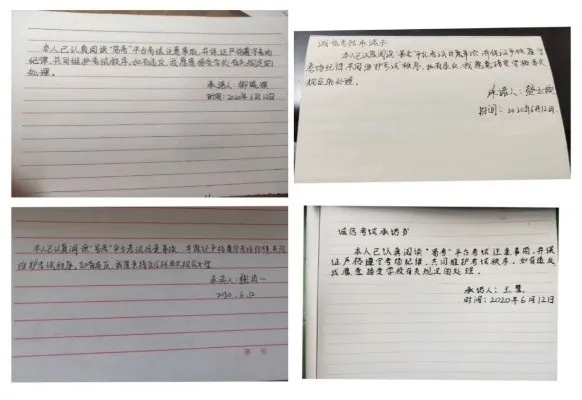 本人已认真阅读"易考"平台考试注意事项，并保证严格遵守考场
纪律，共同维护考试秩序。如有违反，我愿意接受学校有关规定的
处理。
承诺人：
时间：2020年6月12日
诚信考试承诺书
本人已认真阅读"易考"平台考试注意事项，并保证严格遵守
考场纪律，共同维护考试秩序。如有违反，我愿意接受学校有关
规定的处理。
承诺人：
时间：2020年6月12日
本人已认真阅读"易考"平台考试注意事项，并保证严格遵守考场纪律，共同
维护考试秩序，如有违反，我愿意接受学校有关规定处理
承诺人：
2020.6.12
诚信考试承诺书
本人已认真阅读"易考"平台考试注意事项，并保
证严格遵守考场纪律，共同维护考试秩序。如有违反
我愿意接受学校有关规定的处理。
承诺人：王慧
时间：2020年6月12日